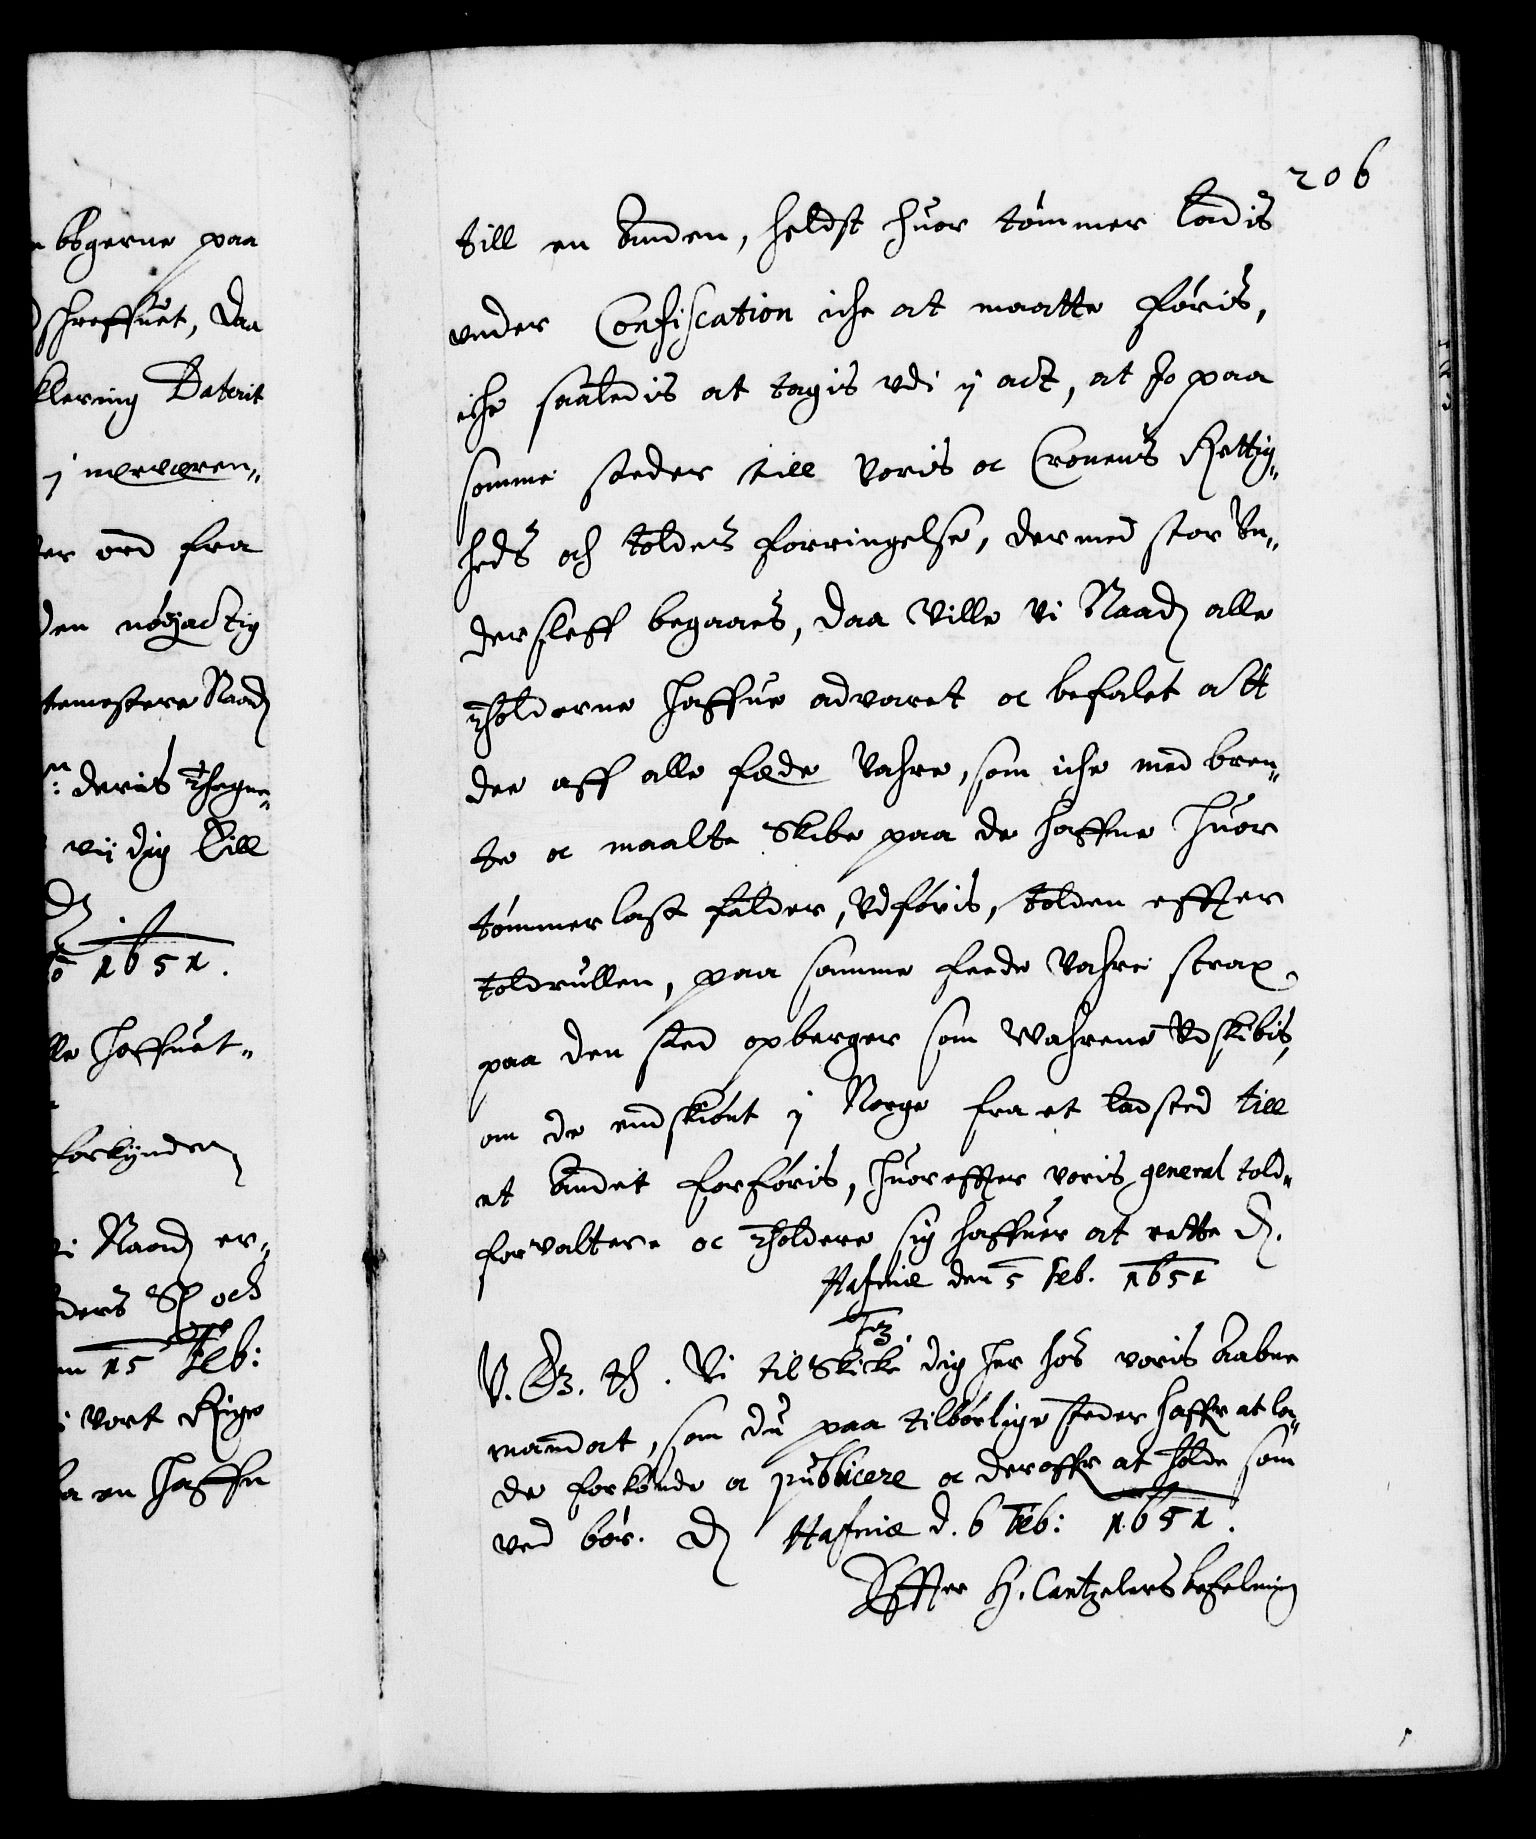 206
till en anden, heldst huor tømmer ladis
vnder Confiscation iche at maatte føris,
iche saaledis at tagis vdi y act, at Jo paa
somme steder till voris oc Cronens Rettig„
heds och toldens forringelse, dermed stor Vn„
dersleff begaaes, daa ville vi Naad alle
Tholderne haffue advaret oc befalet att
dee aff alle fede Vahre, som iche med bren„
te oc maalte Skibe paa de haffne huor
tømmerlast falder, vdføris, tolden effter
toldrullen, paa samme feede Vahre strax
paa den sted opberger som Wahrene Vdskibis,
om de endskiønt y Norge fra et ladsted till
et Andet forføris, huoreffter voris general told„
forvaltere oc Tholdere sig haffuer at rette D.
Hafniæ den 5 Feb. 1651
F3.
V. G3. th. Vi tilskicke dig her hos voris Aabne
mandat, som du paa tilbørlige steder haffr at la„
de forkønde oc publicere oc deroffr at holde som
ved bør. D Hafniæ d. 6 Feb: 1651.
Effter H. Cantzelers befalning
bøgerne paa
schreffuet, daa
klering Daterit
j nerværen„
er ord fra
den nøyactig
temestere Naad
deris Thegne„
vii dig till
1651.
lle haffuet„
forkynden
vi Naad er„
ders Sp och
15 Feb:
vort Rige
en haffn